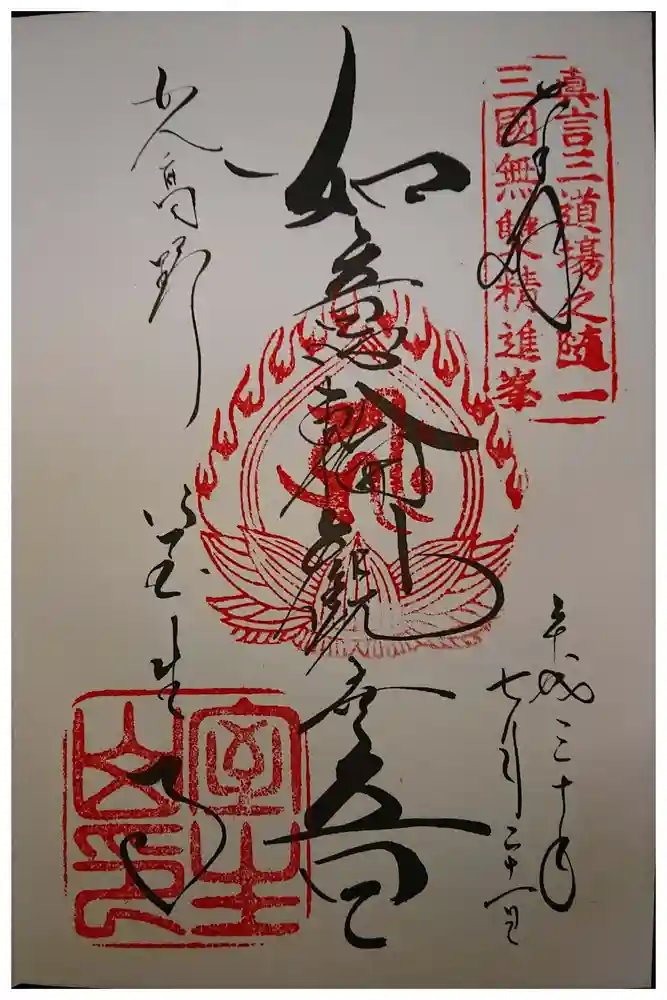 奉拝
真言三道場之随一
三國無雙精進峯
平成三十年
七月二十一日
如意輪觀世音
女人高野
室生寺
室生
山印